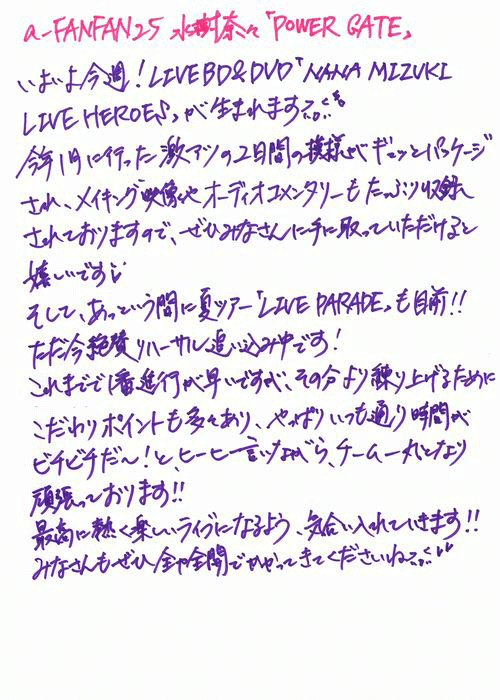 a-FANFAN25 水樹奈々「POWER GATE」
いよいよ今週！LIVE BD&DVD「NANA MIZUKI
LIVE HEROES」が生まれます
今年1月に行った激アツの2日間の模様がギュッとパッケージ
され、メイキング映像やオーディオコメンタリーもたっぷり収録
されておりますので、ぜひみなさんに手に取っていただけると
嬉しいです♡
そして、あっという間に夏ツアー「LIVE PARADE」も目前!!
ただ今絶賛リハーサル追い込み中です！
これまでで1番進行が早いですが、その分より練り上げるために
こだわりポイントも多々あり、やっぱりいつも通り時間が
ピチピチだ〜！と、ヒーヒー言いながら、チーム一丸となり
頑張っております!!
最高に熱く楽しいライブになるよう、気合い入れていきます!!
みなさんもぜひ全力全開でかかってきてくださいね